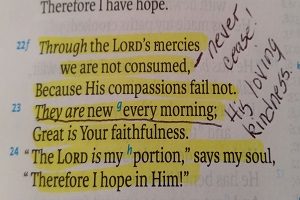 Therefore I have hope.
22f Through the LORD's mercies
we are not consumed,
Because His compassions fail not.
23 They are new g every morning;
Great is Your faithfulness.
24 "The LORD is my h portion," says my soul,
"Therefore I hope in Him!"
- never
cease!
His loving
kindness.